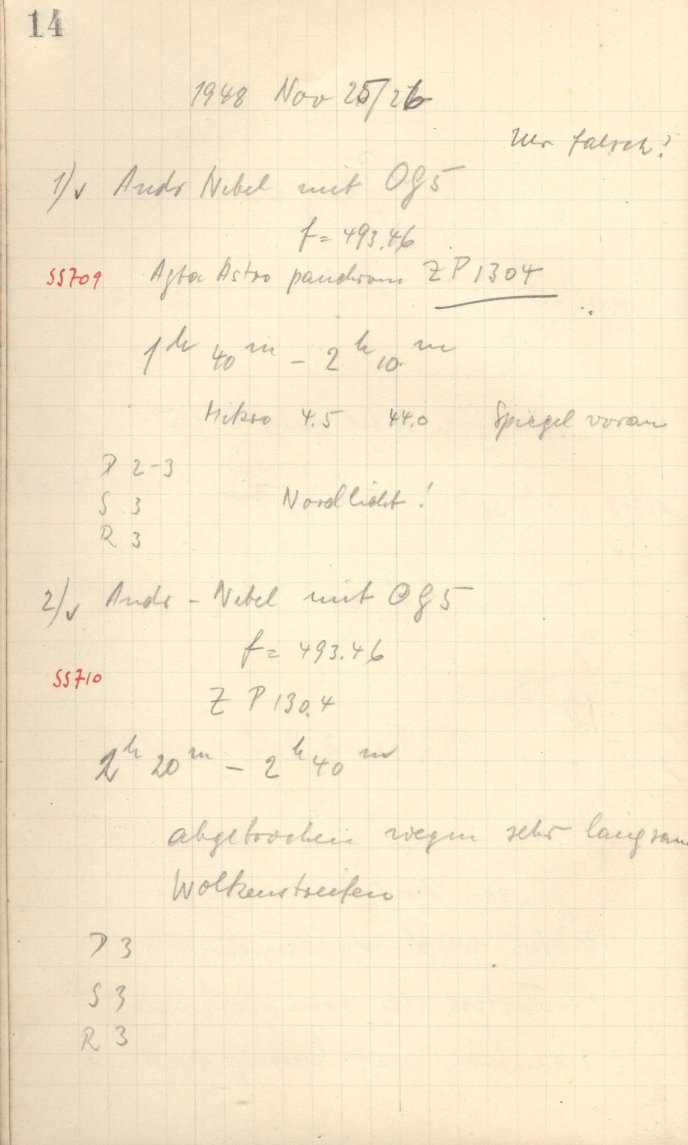 14
1948 Nov 25/26
Uhr falsch?
1)√ Andr Nebel mit OG5
f = 493.46
SS709 Agfa Astro panchrom ZP1304
1h 40m - 2h 10m
Mikro 4.5 44.0 Spiegel voran
D 2-3
S 3 Nordlicht!
R 3
2)√ Andr - Nebel mit OG5
f = 493.46
SS710
ZP1304
2h 20m - 2h 40m
abgebrochen wegen sehr langsam
Wolkenstreifen
D 3
S 3
R 3